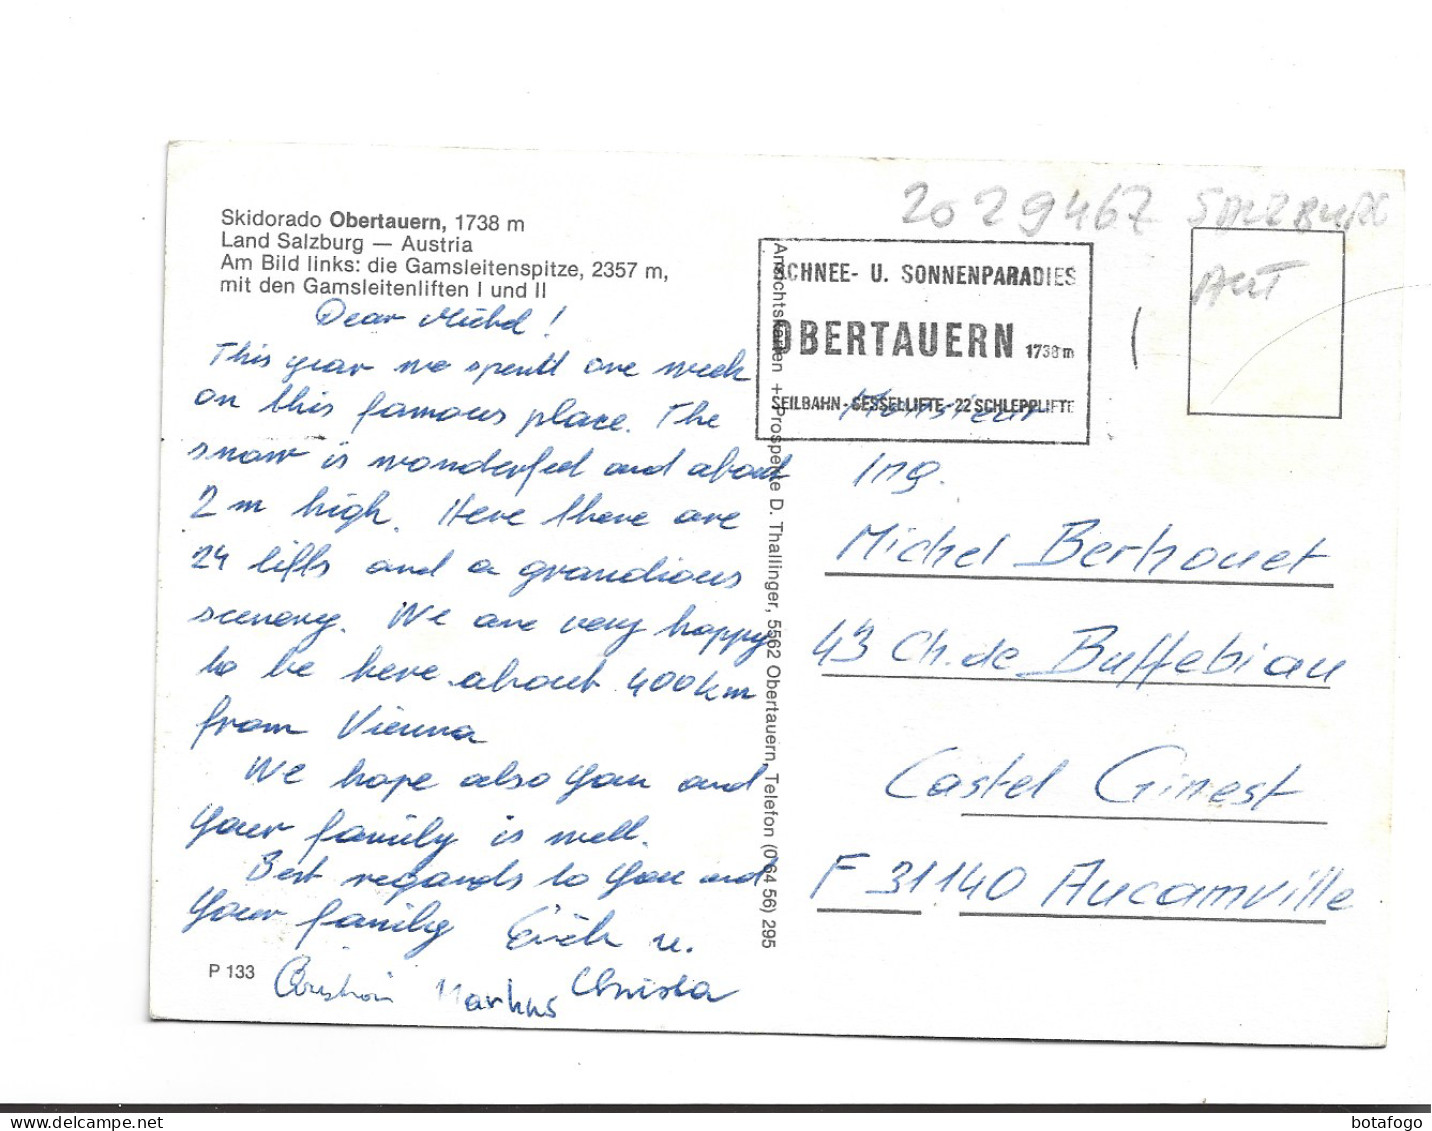 Skidorado Obertauern, 1738 m
Land Salzburg — Austria
Am Bild links: die Gamsleitenspitze, 2357 m,
mit den Gamsleitenliften I und II
Dear Michel!
This year we spent one week
on this famous place. The
snow is wonderful and about
2 m high. Here there are
24 lifts and a grandious
scenery. We are very happy
to be here about 400 km
from Vienna
We hope also you and
your family is well.
Best regards to you and
your family Erich u.
Christa
Christian Markus
P 133
Ansichtskarten + Prospekte D. Thallinger, 5562 Obertauern, Telefon (0 64 56) 295
2029467 SALZBURG
AUT
SCHNEE- U. SONNENPARADIES
OBERTAUERN 1738 m
SEILBAHN-SESSELLIFTE-22 SCHLEPPLIFTE
Monsieur
Ing.
Michel Berhouet
43 Ch. de Buffebiau
Castel Ginest
F 31140 Aucamville
botafogo